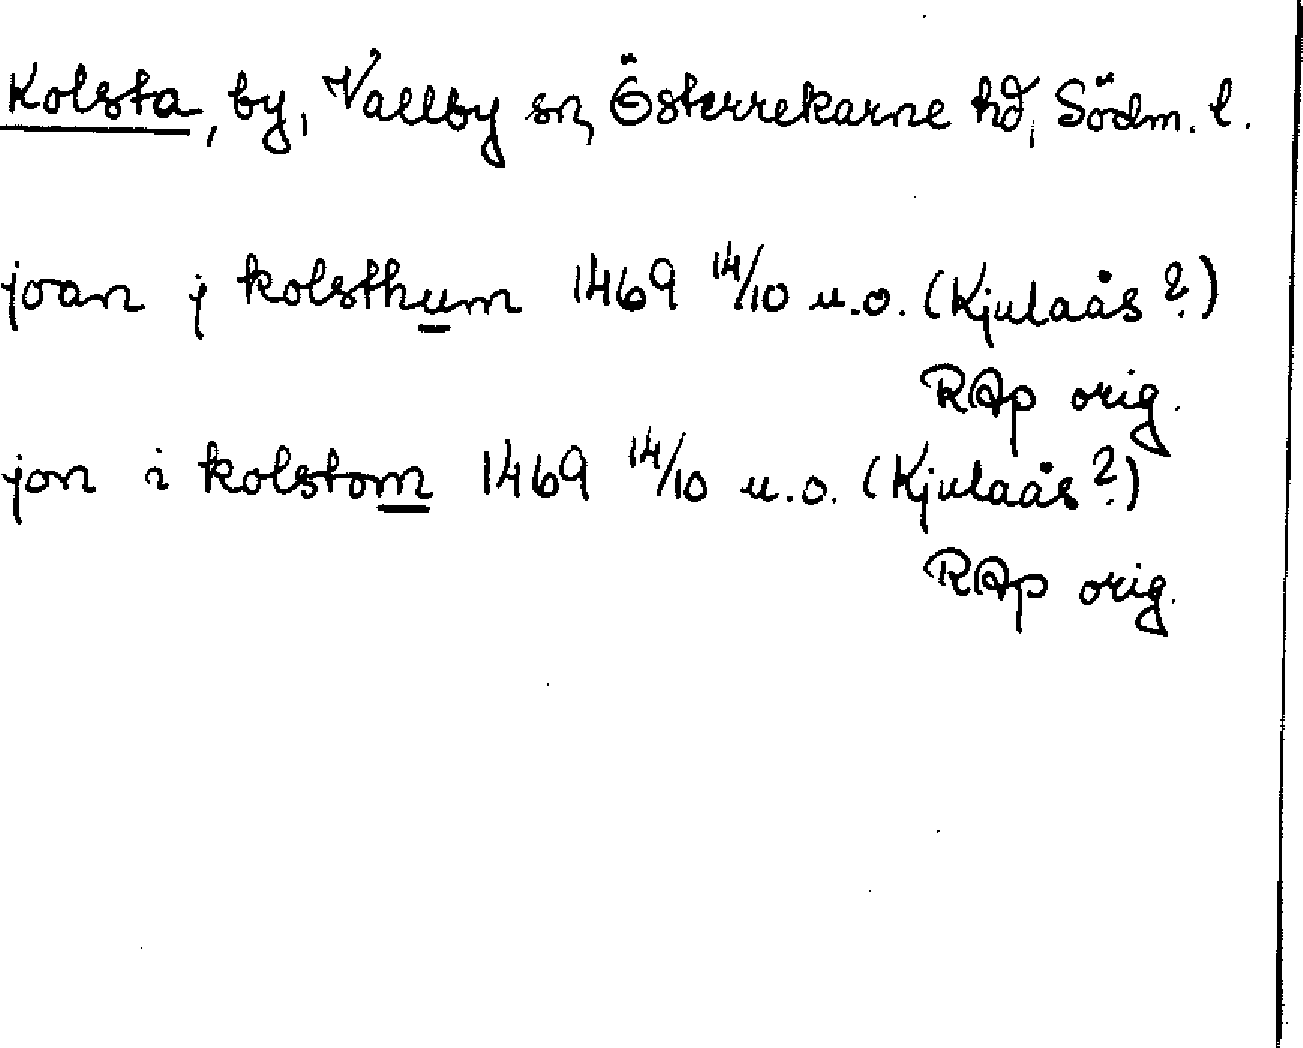 Kolsta, by, Vallby sn, Österrekarne hd, Södm. l.
joan j kolsthum 1469 14/10 u.o. (Kjulaås?)
RAp orig.
jon i kolstom 1469 14/10 u.o. (Kjulaås?)
RAp orig.